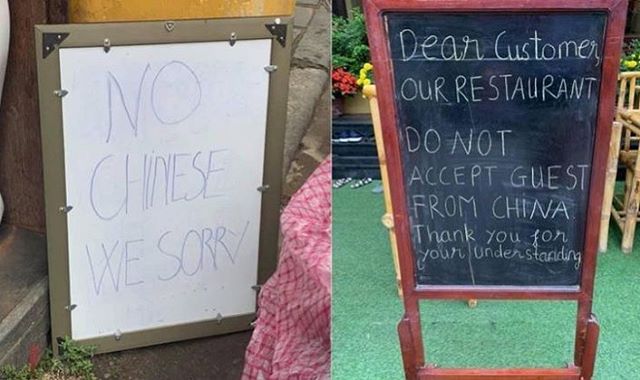 NO
CHINESE
WE SORRY
Dear Customer,
OUR RESTAURANT
DO NOT
ACCEPT GUEST
FROM CHINA
Thank you for
your Understanding